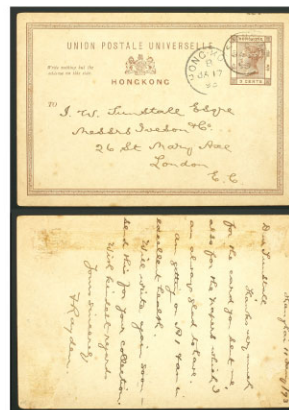 UNION POSTALE UNIVERSELLE
HONGKONG
Write nothing but the
address on this side.
HONG KONG
B
JA 17
93
HONG KONG
3 CENTS
TO
J. W. Tunstall Esqre
Messrs Iveson & Co.
26 St Mary Axe
London
E. C.
Shanghai 11 Jany / 93
Dear Tunstall
Thanks very much
for the card you sent me,
also for the papers which I
am always glad to have.
am getting on A1 & am in
excellent health.
Will write again soon –
send this for your collection.
With kindest regards
Yours sincerely